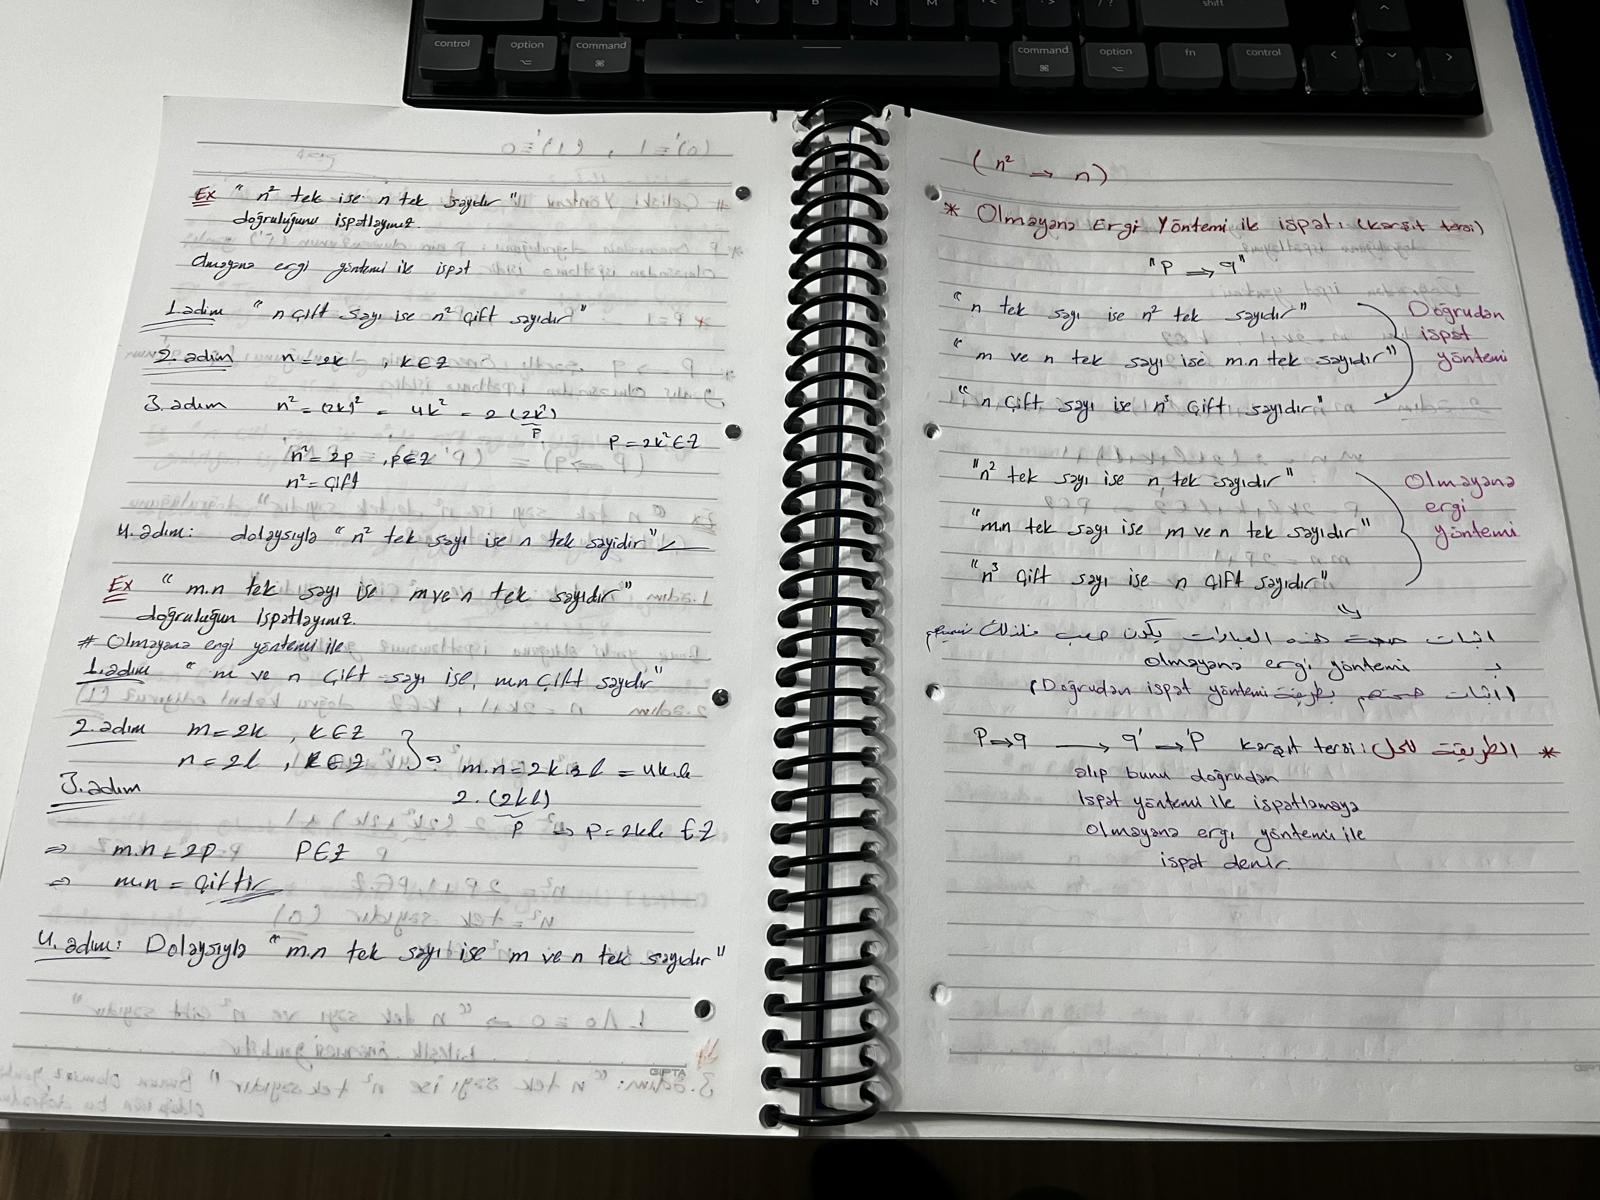 control
option
command
command
option
fn
control
shift
B
N
M
Ex " n² tek ise n tek sayıdır "
doğruluğunu ispatlayınız.
Olmayana ergi yöntemi ile ispat
1.adım " n çift sayı ise n² çift sayıdır "
2.adım n = 2k , k∈Z
3.adım n² = (2k)² = 4k² = 2 (2k²)
P
P = 2k² ∈ Z
n² = 2p , p∈Z
n² = çift
4.adım: dolaysıyla " n² tek sayı ise n tek sayıdır "
Ex " m.n tek sayı ise m ve n tek sayıdır "
doğruluğun ispatlayınız.
# Olmayana ergi yöntemi ile
1.adım " m ve n çift sayı ise, m.n çift sayıdır "
2.adım m = 2k , k∈Z
n = 2l , k∈Z } ⇒ m.n = 2k.2l = 4k.l
3.adım
2. (2kl)
P ⇒ P = 2k.l ∈ Z
⇒ m.n = 2p P∈Z
⇒ m.n = çiftir
4.adım: Dolaysıyla " m.n tek sayı ise m ve n tek sayıdır "
GIPTA
( n² → n )
* Olmayana Ergi Yöntemi ile ispatı (karşıt tersi)
" P → q "
" n tek sayı ise n² tek sayıdır "
" m ve n tek sayı ise m.n tek sayıdır "
" n çift sayı ise n³ çift sayıdır "
Doğrudan
ispat
yöntemi
" n² tek sayı ise n tek sayıdır "
" m.n tek sayı ise m ve n tek sayıdır "
" n³ çift sayı ise n çift sayıdır "
Olmayana
ergi
yöntemi
اثبات صحة هذه العبارات يكون صعب فلذلك
بـ olmayana ergi yöntemi
(اثبات بطريقة Doğrudan ispat yöntemi)
* الطريقة للحل: P→q → q'→P' karşıt tersi
alıp bunu doğrudan
ispat yöntemi ile ispatlamaya
olmayana ergi yöntemi ile
ispat denir.